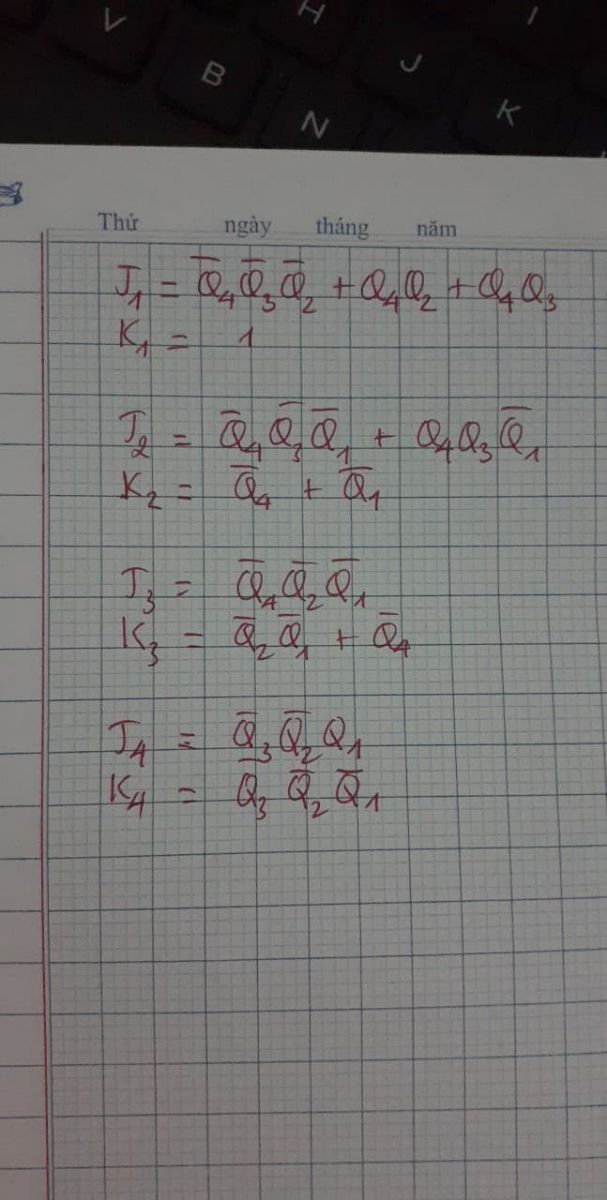 V H I
B J
N K
Thứ ngày tháng năm
J₁ = Q̅₄Q̅₃Q̅₂ + Q₄Q₂ + Q₄Q₃
K₁ = 1
J₂ = Q̅₄Q̅₃Q̅₁ + Q₄Q₃Q̅₁
K₂ = Q̅₄ + Q̅₁
J₃ = Q̅₄Q̅₂Q̅₁
K₃ = Q̅₂Q̅₁ + Q̅₄
J₄ = Q̅₃Q̅₂Q₁
K₄ = Q̅₃ Q̅₂Q̅₁